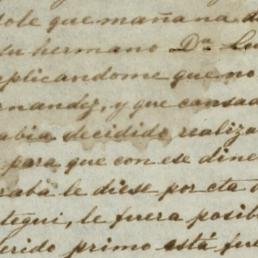 dole que mañana d
su hermano Dn Lu
plicandome que no
rnandez, y que cansad
abia decidido realiza
para que con ese dine
raba le diese por cta
tegui, le fuera posib
uerido primo está fue